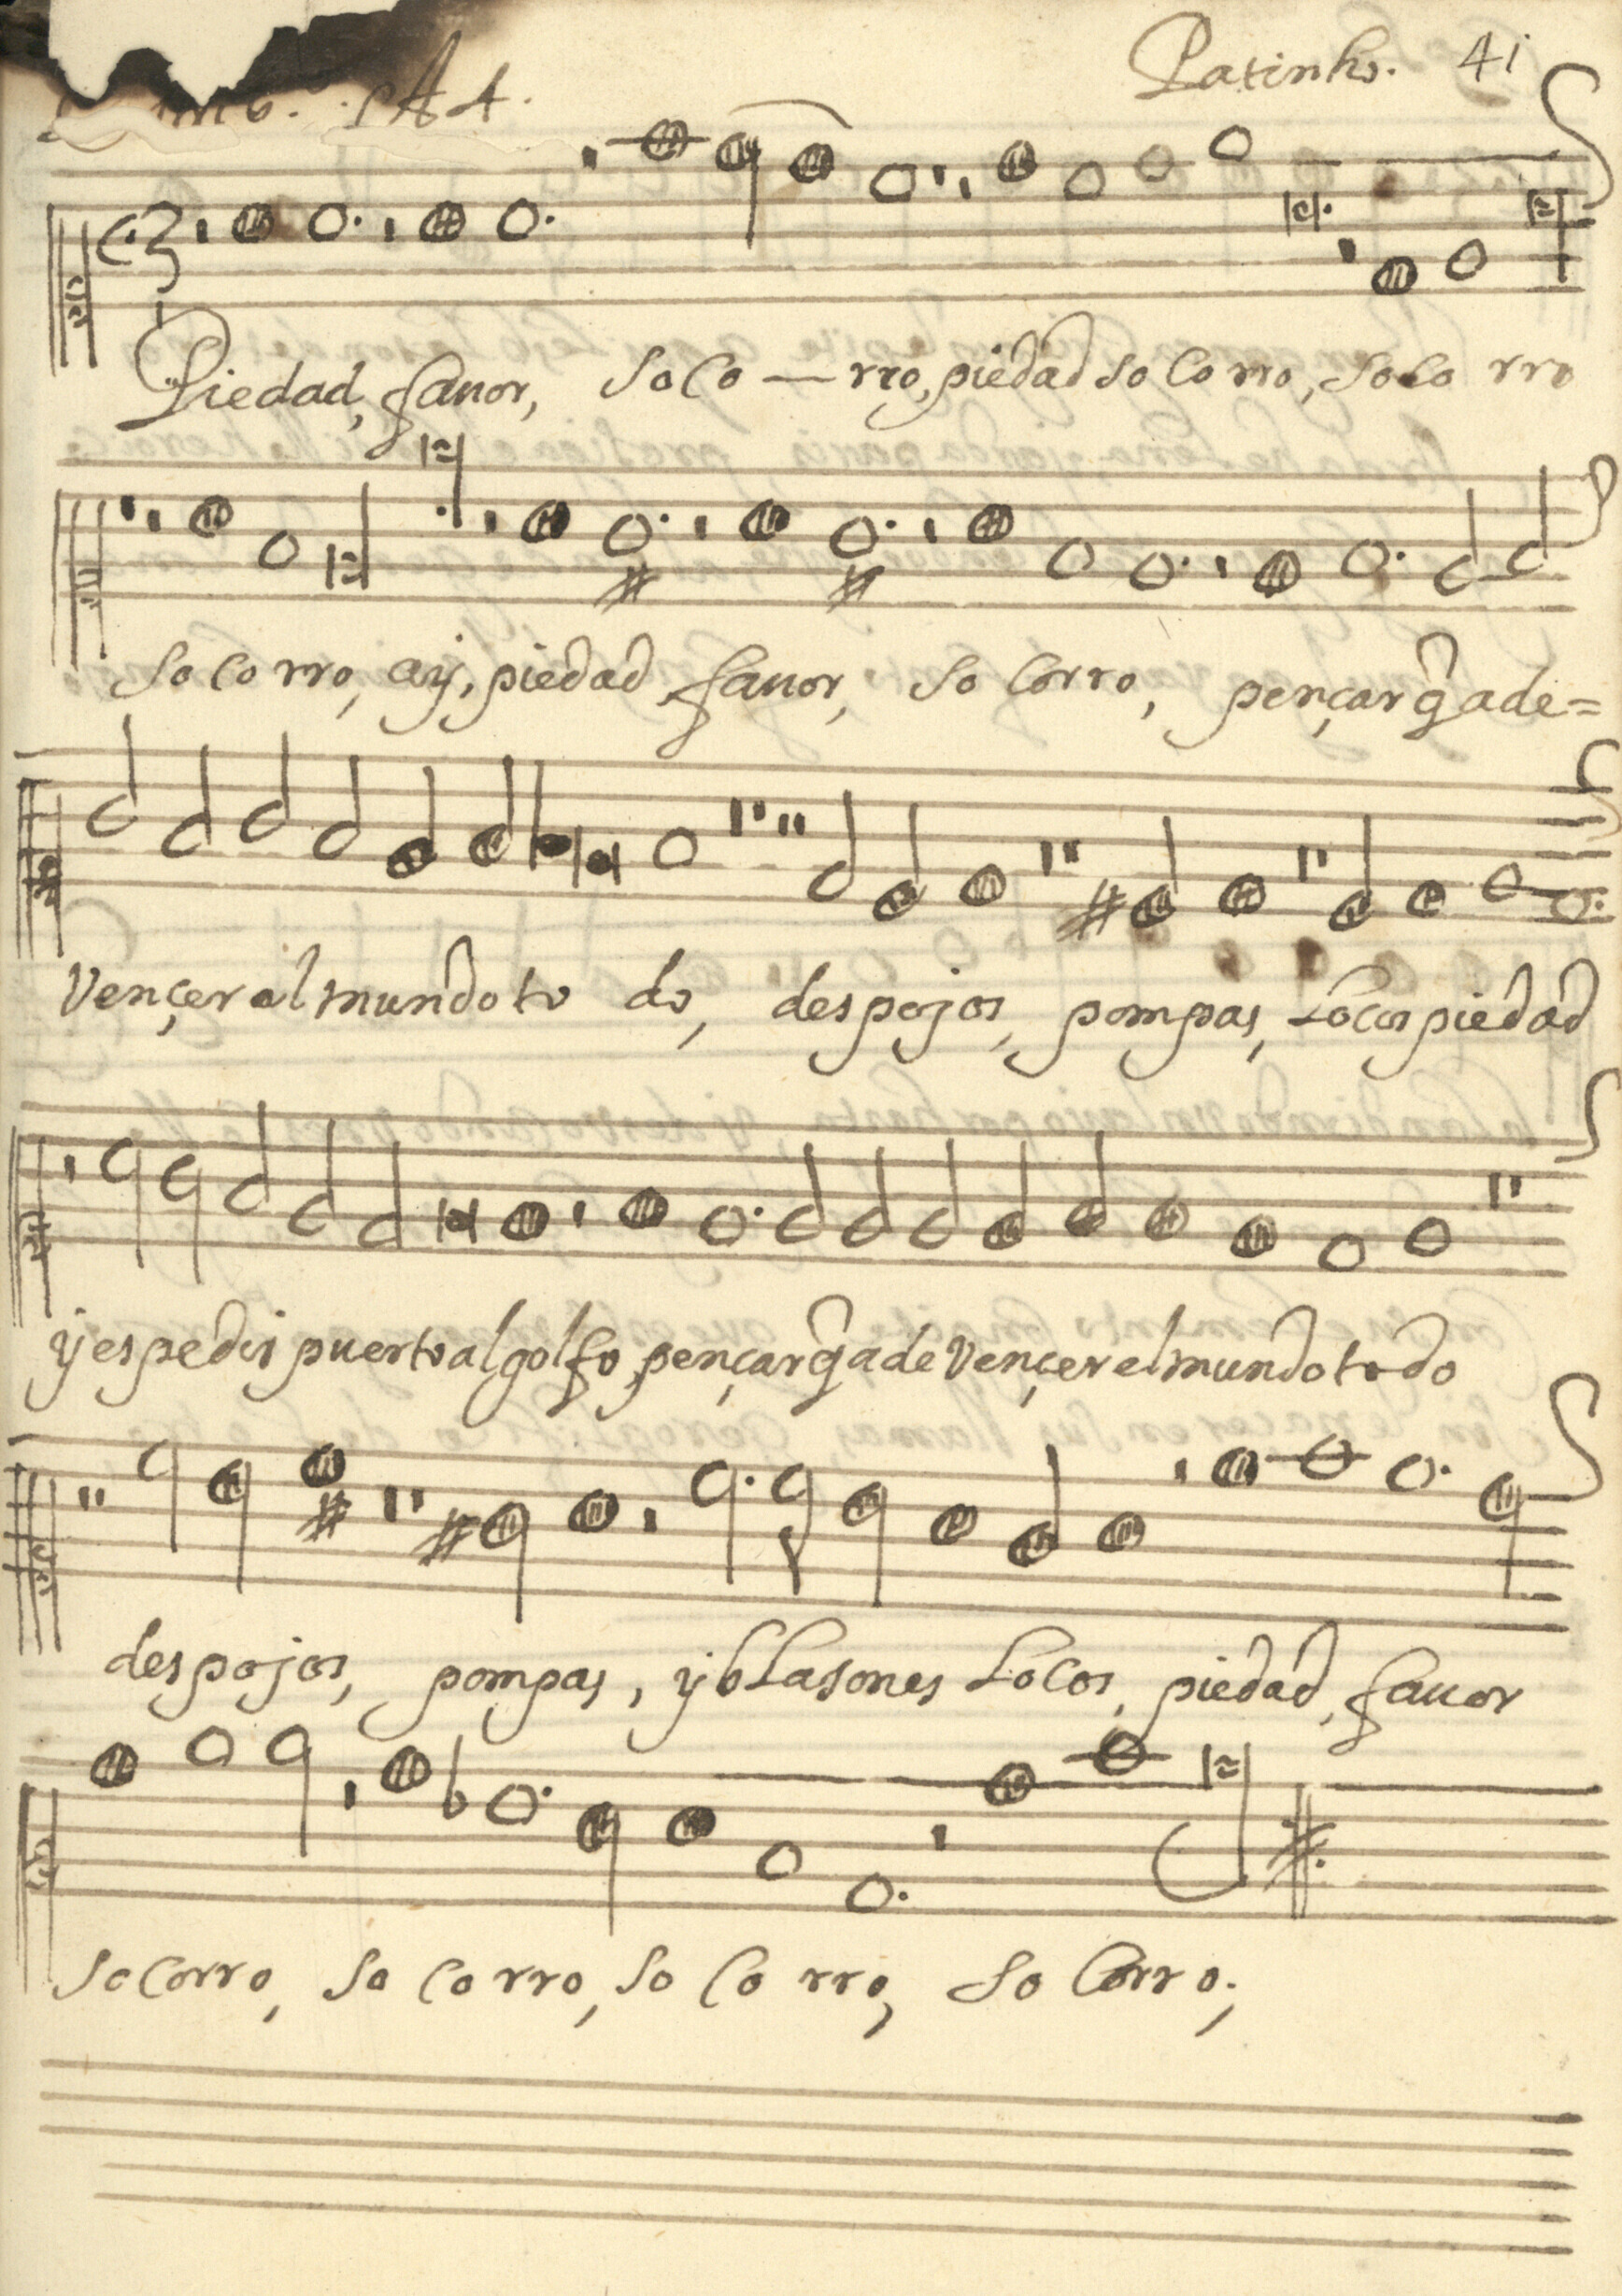 A 4. Patinho. 41
Piedad, fauor, soco — rro, piedad socorro, soco rro
socorro, ay, piedad fauor, socorro, pençar q̃ a de=
vençer al mundo todo, despojos, pompas, Locos piedad
y es pedis puerto al golfo, pençar q̃ a de vençer el mundo todo
despojos, pompas, y bLasones Locos, piedad, fauor
socorro, socorro, socorro, socorro;